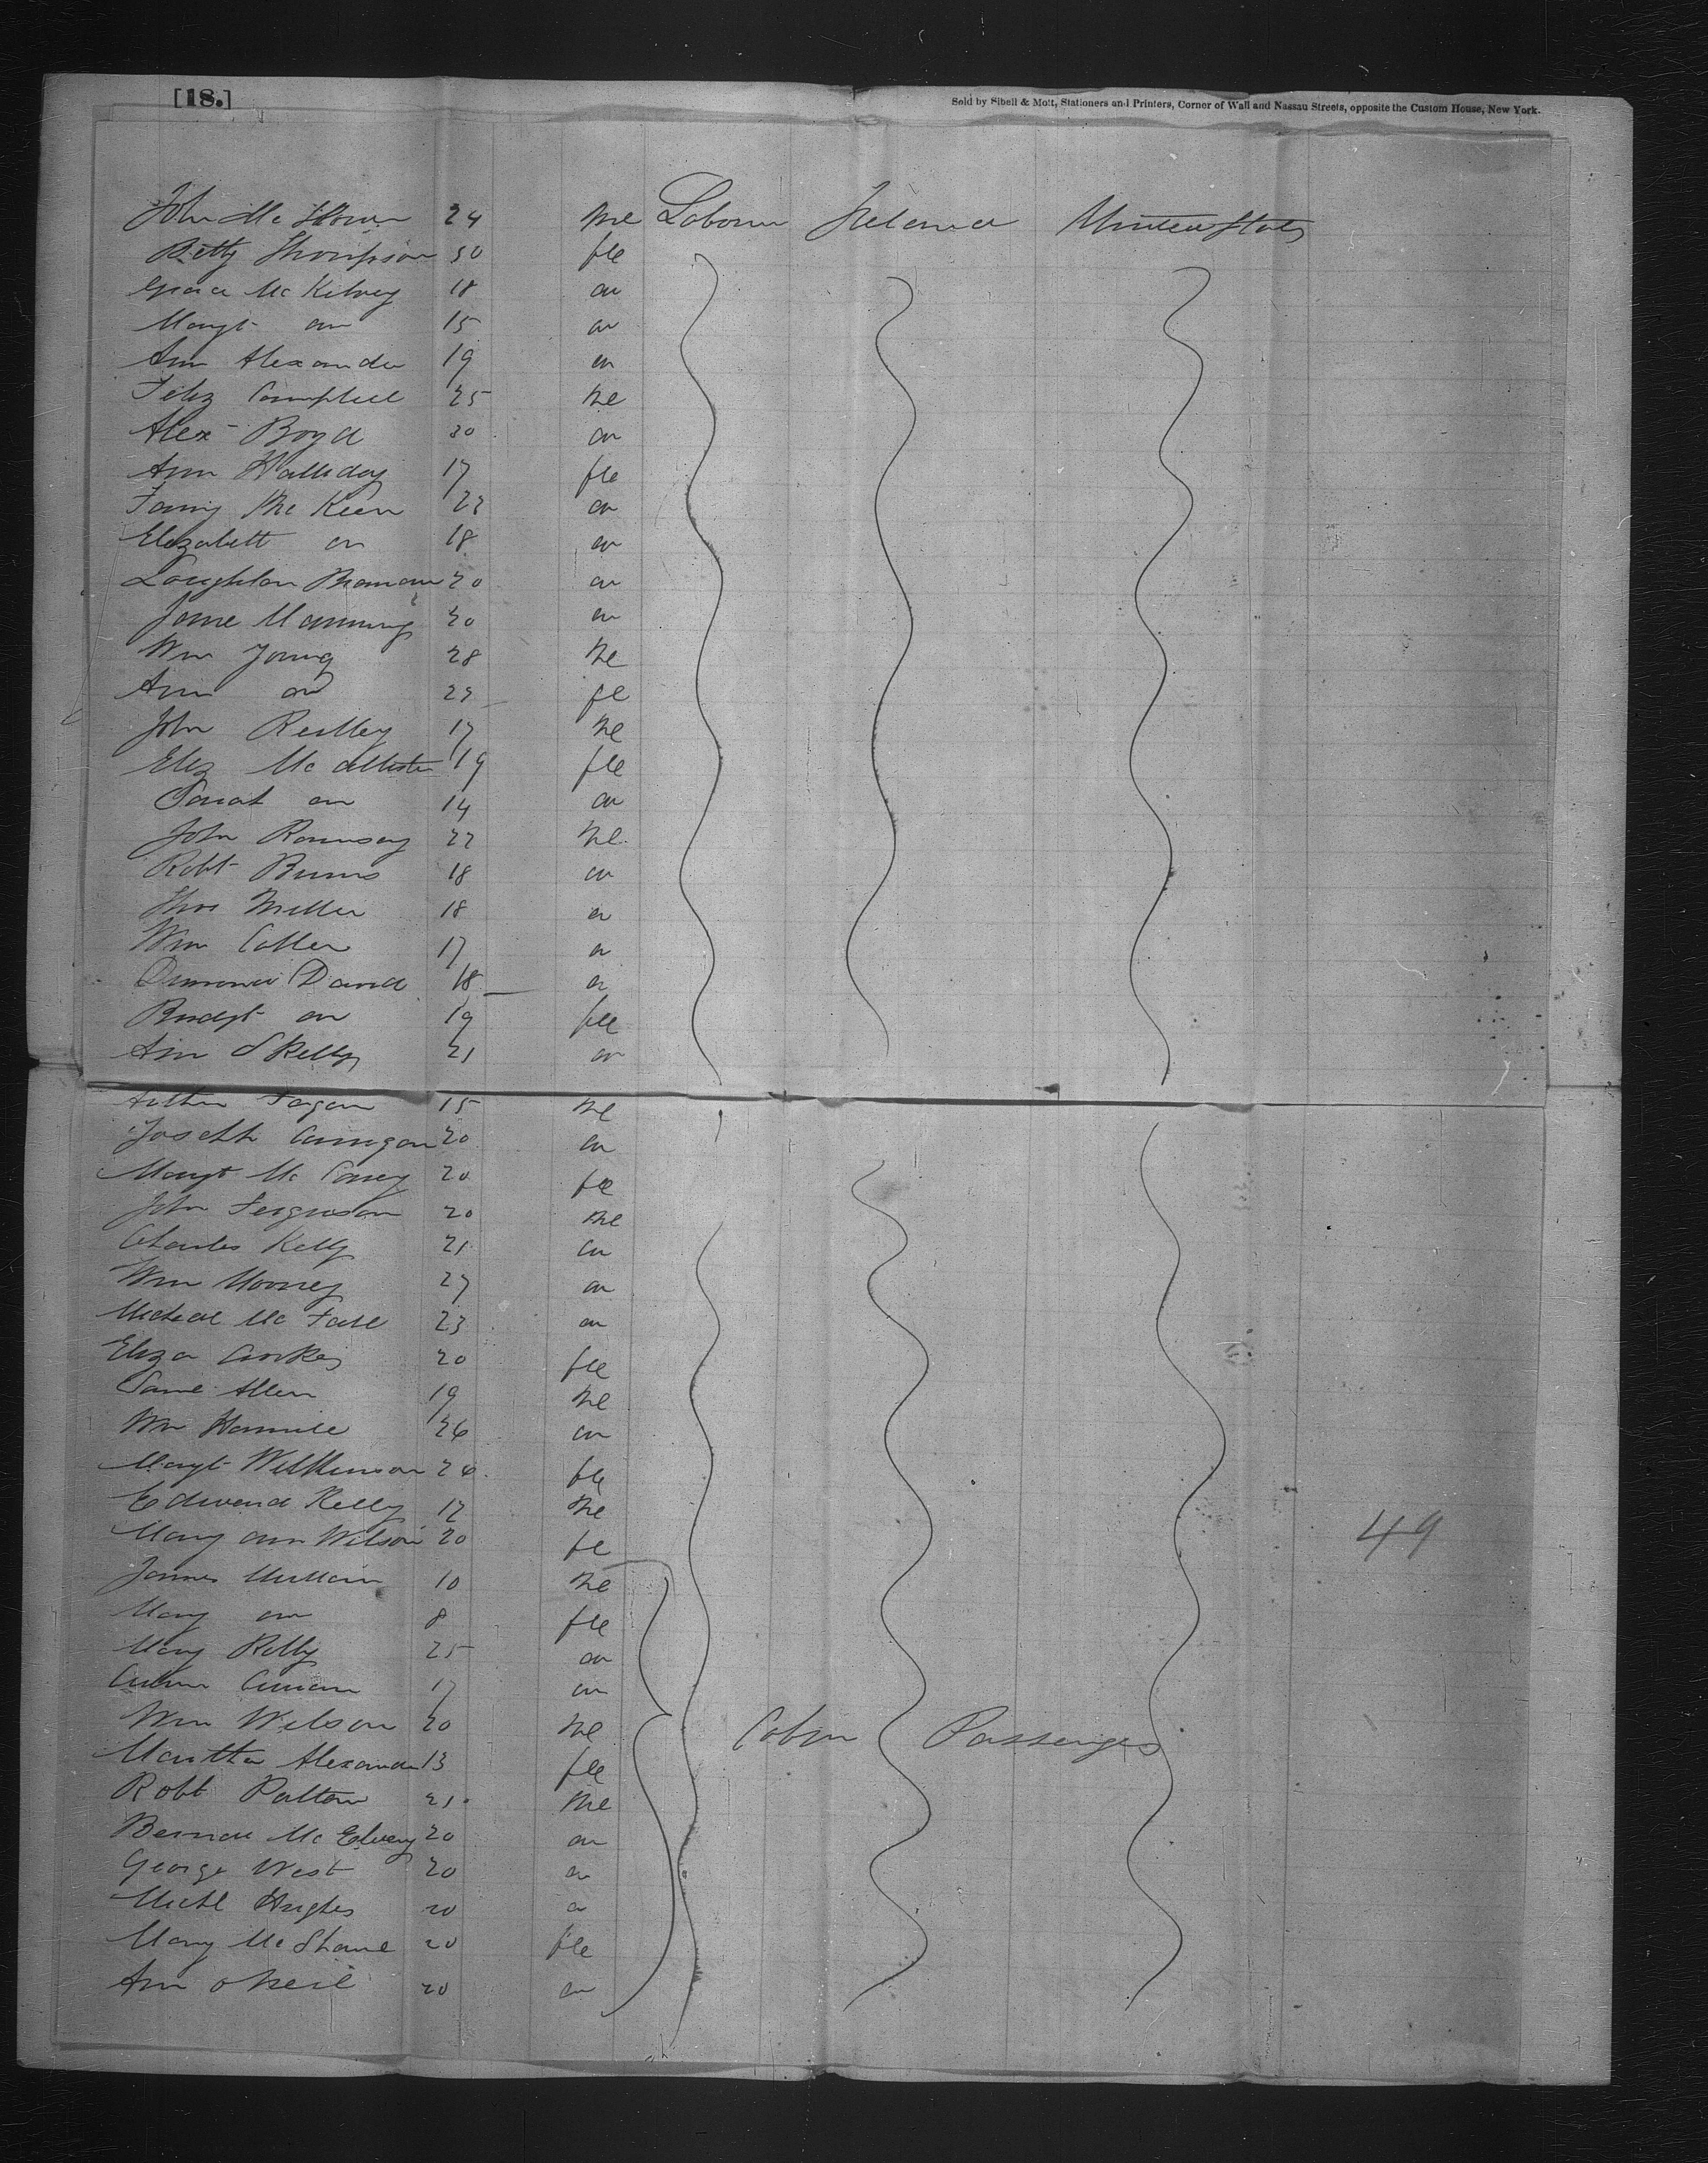 [18.]
Sold by Sibell & Mott, Stationers and Printers, Corner of Wall and Nassau Streets, opposite the Custom House, New York.
John Mc 24 Me Labourer Ireland United States
Betty Thompson 50 fle
Grace Mc Kilvey 18 do
Margt do 15 do
Ann Alexander 19 do
Feliz Campbell 25 Me
Alex Boyd 30 do
Ann Halliday 17 fle
Fanny Mc Keen 23 do
Elizabeth do 18 do
Loughlon 20 do
Jane Manning 20 do
Wm Young 28 Me
Ann do 22 fe
John Reilley 17 Me
Eliz Mc Allister 19 fle
Sarah do 14 do
John Ramsay 22 Me
Robt Burns 18 do
Thos Miller 18 do
Wm 17 do
David 18 do
Bridgt do 19 fle
Ann Skelly 21 do
Arthur Fagan 15 Me
Joseph 20 do
Margt Mc 20 fle
John Ferguson 20 Me
Charles Kelly 21 do
Wm Mooney 27 do
Micheal Mc Fall 23 do
Eliza 20 fle
Saml Allen 19 Me
Wm Hamill 26 do
Margt Wilkinson 26 fle
Edward Kelly 17 Me
Mary Ann Wilson 20 fe 49
James 10 Me
Mary do 8 fle
Mary Kelly 25 do
17 do
Wm Wilson 20 Me Cabin Passengers
Martha Alexander 13 fle
Robt Patton 21 Me
Bernard Mc Elvey 20 do
George West 20 do
Michl Hughes 20 do
Mary Mc Shane 20 fle
Ann o Neil 20 do